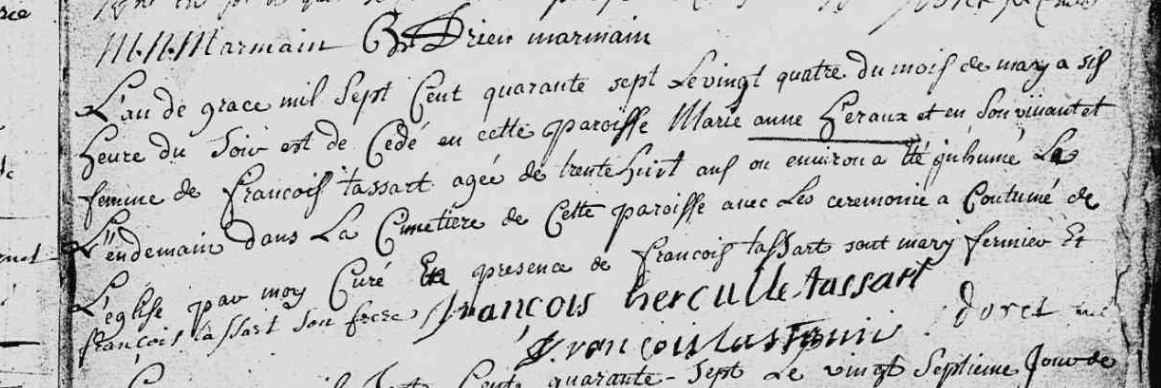 M.N. Marmain Adrien marmain
L'an de grace mil sept Cent quarante sept Le vingt quatre du mois de may a six
heure du soir est de Cedé en cette paroisse Marie anne heraux et en son vivant et
femme de francois tassart agée de trente huit ans ou environ a été ynhumé Le
L'endemain dans La Cimetiere de Cette paroisse avec Les ceremonie a Coutumé de
L'église par moy Curé En presence de francois tassart sont mary fermier Et
francois tassart son frere françois herculle tassart
doret
Cent quarante-sept Le vingt septieme Jour de